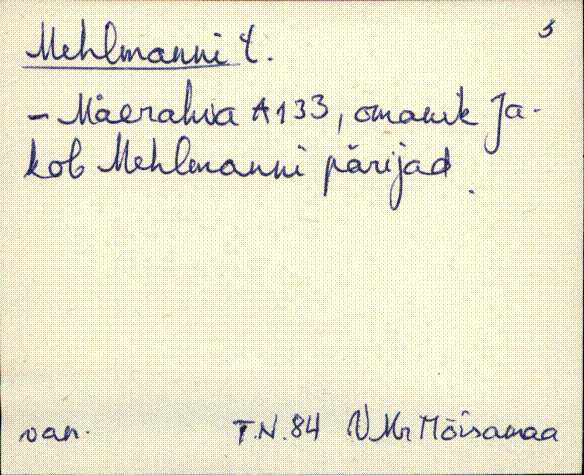 5
Mehlmanni t.
- Mäerahva A133, omanik Ja-
kob Mehlmanni pärijad.
van. T.N.84 VMr Mõisamaa